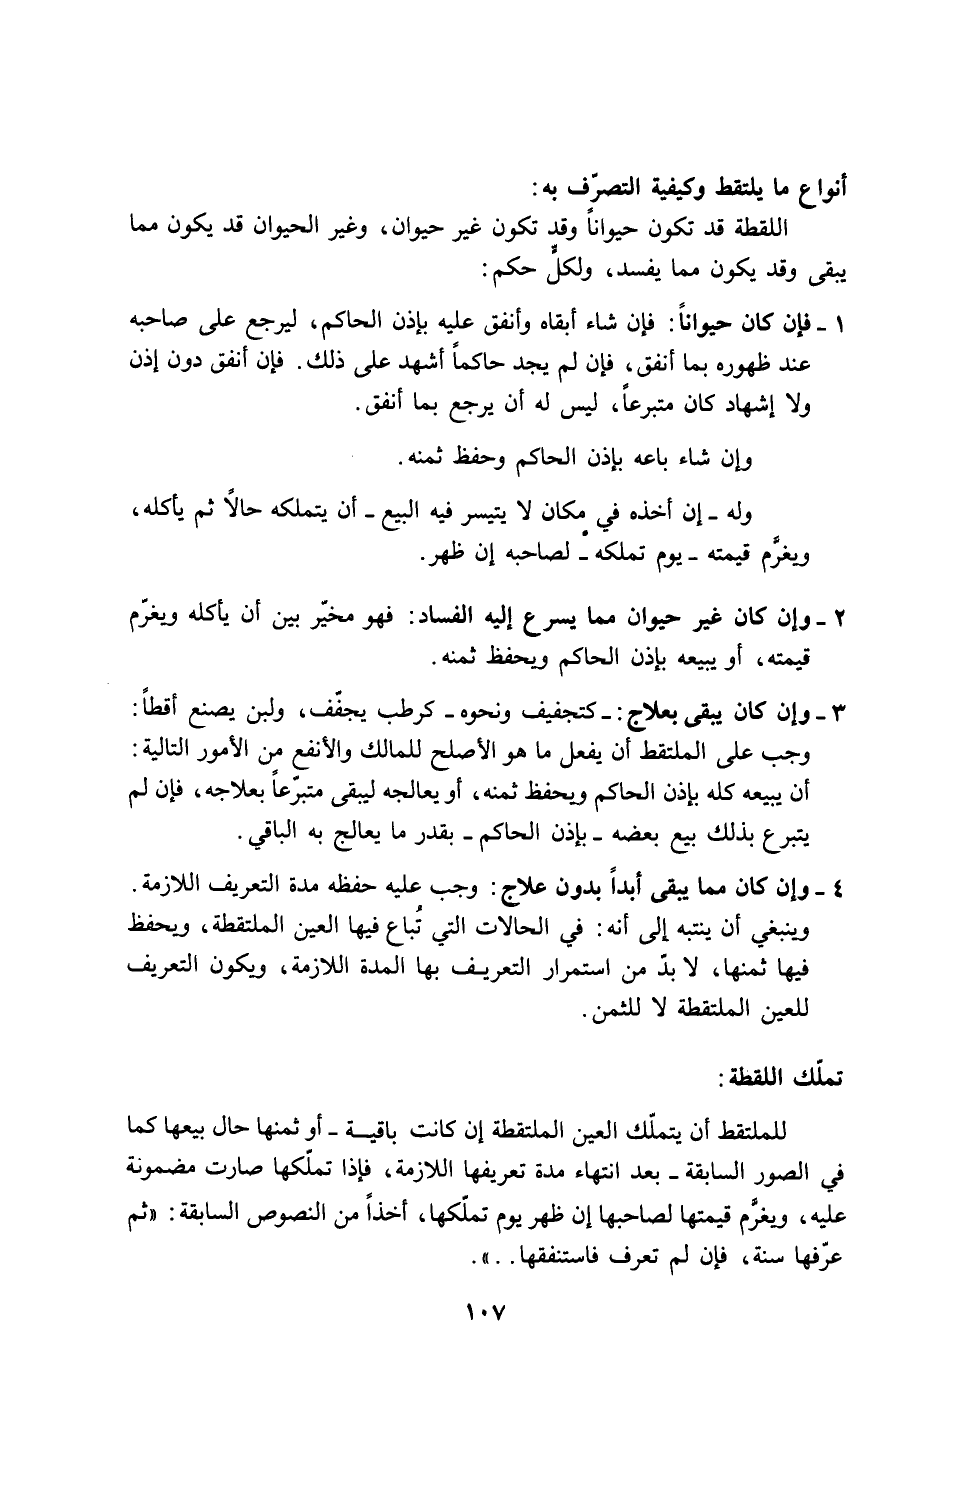 أنواع ما يلتقط وكيفية التصرّف به:
اللقطة قد تكون حيواناً وقد تكون غير حيوان، وغير الحيوان قد يكون مما
يبقى وقد يكون مما يفسد، ولكلٍّ حكم:
١ - فإن كان حيواناً: فإن شاء أبقاه وأنفق عليه بإذن الحاكم، ليرجع على صاحبه
عند ظهوره بما أنفق، فإن لم يجد حاكماً أشهد على ذلك. فإن أنفق دون إذن
ولا إشهاد كان متبرعاً، ليس له أن يرجع بما أنفق.
وإن شاء باعه بإذن الحاكم وحفظ ثمنه.
وله - إن أخذه في مكان لا يتيسر فيه البيع - أن يتملكه حالاً ثم يأكله،
ويغرَّم قيمته - يوم تملكه - لصاحبه إن ظهر.
٢ - وإن كان غير حيوان مما يسرع إليه الفساد: فهو مخيّر بين أن يأكله ويغرّم
قيمته، أو يبيعه بإذن الحاكم ويحفظ ثمنه.
٣ - وإن كان يبقى بعلاج: - كتجفيف ونحوه - كرطب يجفّف، ولبن يصنع أقطاً:
وجب على الملتقط أن يفعل ما هو الأصلح للمالك والأنفع من الأمور التالية:
أن يبيعه كله بإذن الحاكم ويحفظ ثمنه، أو يعالجه ليبقى متبرّعاً بعلاجه، فإن لم
يتبرع بذلك بيع بعضه - بإذن الحاكم - بقدر ما يعالج به الباقي.
٤ - وإن كان مما يبقى أبداً بدون علاج: وجب عليه حفظه مدة التعريف اللازمة.
وينبغي أن ينتبه إلى أنه: في الحالات التي تُباع فيها العين الملتقطة، ويحفظ
فيها ثمنها، لا بدّ من استمرار التعريف بها المدة اللازمة، ويكون التعريف
للعين الملتقطة لا للثمن.
تملّك اللقطة:
للملتقط أن يتملّك العين الملتقطة إن كانت باقية - أو ثمنها حال بيعها كما
في الصور السابقة - بعد انتهاء مدة تعريفها اللازمة، فإذا تملّكها صارت مضمونة
عليه، ويغرَّم قيمتها لصاحبها إن ظهر يوم تملّكها، أخذاً من النصوص السابقة: «ثم
عرّفها سنة، فإن لم تعرف فاستنفقها...».
١٠٧